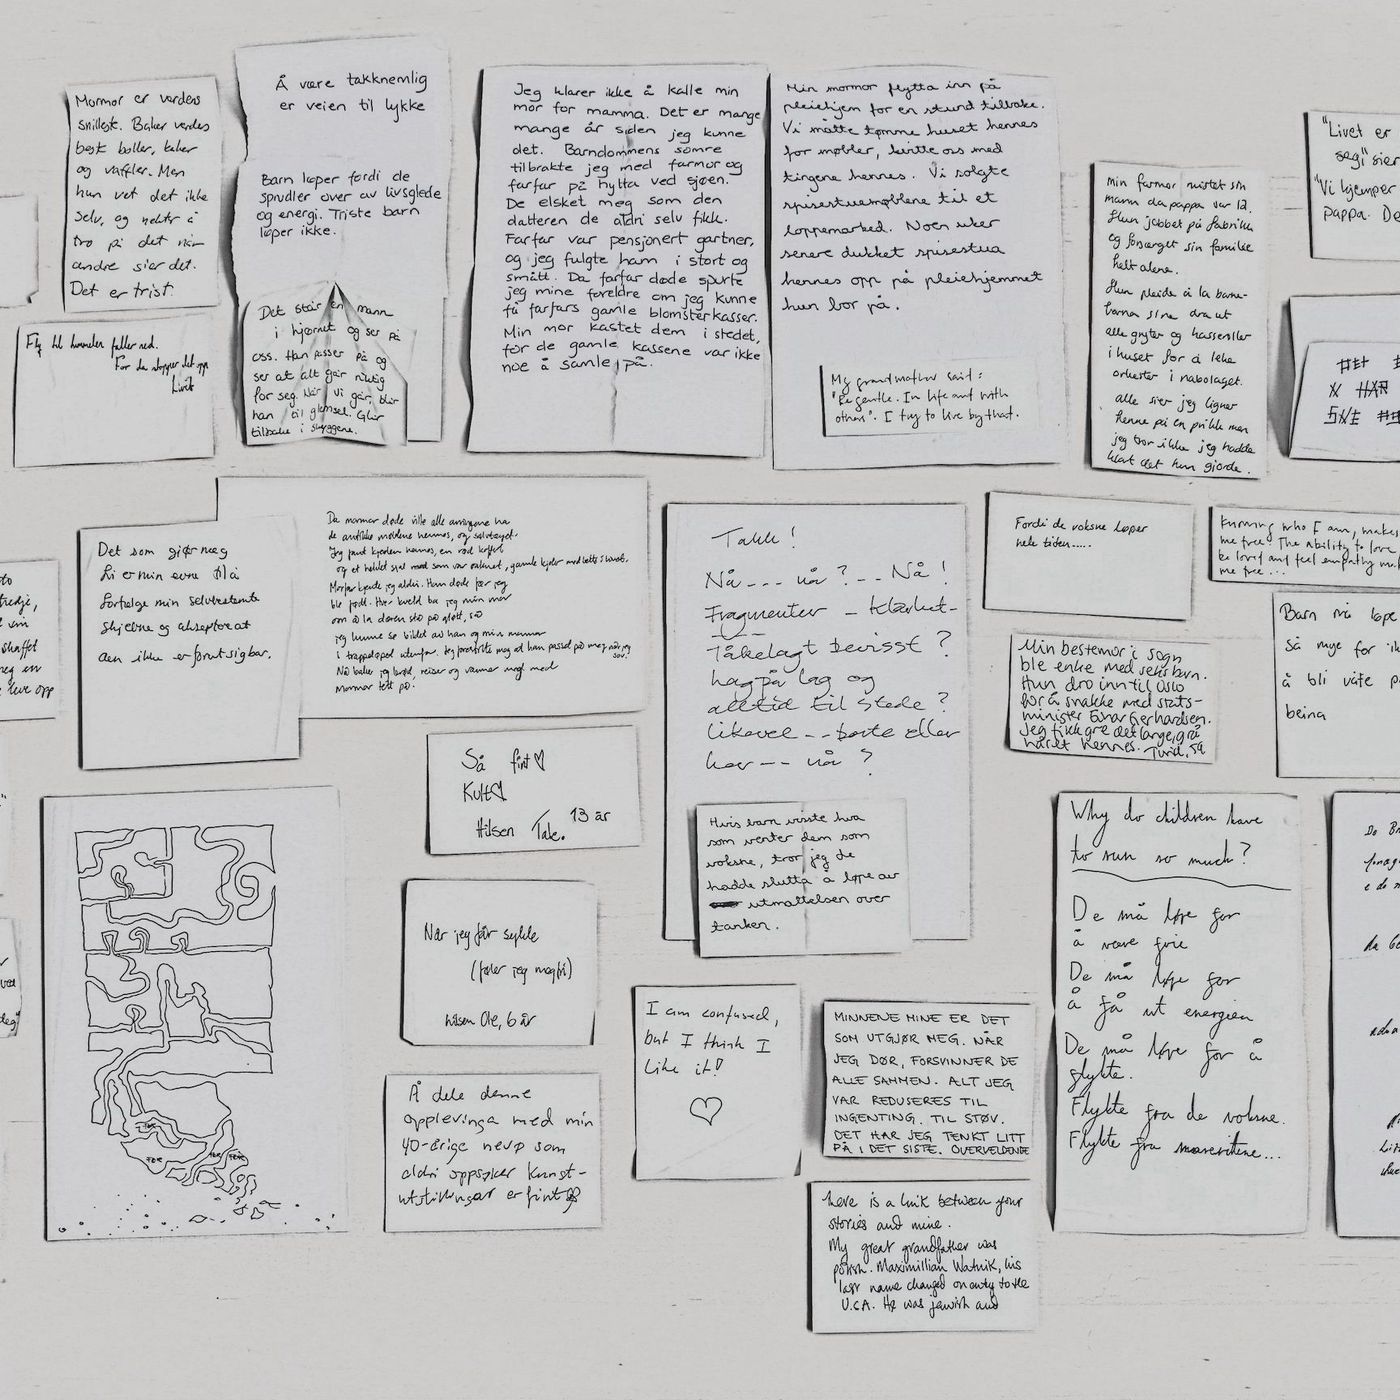 Mormor er verdens
snilleste. Baker verdens
best boller, kaker
og vafler. Men
hun vet det ikke
selv, og nekter å
tro på det når
andre sier det.
Det er trist.
Å være takknemlig
er veien til lykke
Barn løper fordi de
sprudler over av livsglede
og energi. Triste barn
løper ikke.
Det står en mann
i hjørnet og ser på
oss. Han passer på og
ser at alt går riktig
for seg. Når vi går, blir
han til glemsel. Glir
tilbake i skyggene.
Fly til himmelen faller ned.
For da stopper det opp
Livet
Jeg klarer ikke å kalle min
mor for mamma. Det er mange
mange år siden jeg kunne
det. Barndommens somre
tilbrakte jeg med farmor og
farfar på hytta ved sjøen.
De elsket meg som den
datteren de aldri selv fikk.
Farfar var pensjonert gartner,
og jeg fulgte ham i stort og
smått. Da farfar døde spurte
jeg mine foreldre om jeg kunne
få farfars gamle blomsterkasser.
Min mor kastet dem i stedet,
for de gamle kassene var ikke
noe å samle på.
Min mormor flytta inn på
pleiehjem for en stund tilbake.
Vi måtte tømme huset hennes
for møbler, kvitte oss med
tingene hennes. Vi solgte
spisestuemøblene til et
loppemarked. Noen uker
senere dukket spisestua
hennes opp på pleiehjemmet
hun bor på.
My grandmother said:
"Be gentle. In life and with
others". I try to live by that.
min farmor mistet sin
mann da pappa var 12.
Hun jobbet på fabrikk
og forsørget sin familie
helt alene.
Hun pleide å la barne-
barna sine dra ut
alle gryter og kasseroller
i huset for å leke
orkester i nabolaget.
alle sier jeg ligner
henne på en prikk men
jeg tror ikke jeg hadde
klart det hun gjorde.
"Livet er
seg" sier
"Vi kjemper
pappa. De
DET
HAR
SNE
Det som gjør meg
fri er min evne til å
forfølge min selvbestemte
skjebne og akseptere at
den ikke er forutsigbar.
Da mormor døde ville alle arvingene ha
de antikke møblene hennes, og sølvtøyet.
Jeg fant kjolen hennes, en rød koffert
Morfar kjente jeg aldri. Han døde før jeg
ble født. Hver kveld ba jeg min mor
om å la døren stå på gløtt, så
jeg kunne se bildet av han og min mamma
Nå baker jeg brød, reiser og varmer meg med
mormor tett på.
Takk!
Nå --- nå? -- Nå!
Fragmenter – klarhet –
Tåkelagt bevisst?
lag på lag og
alltid til stede?
likevel -- borte eller
her -- nå?
Hvis barn visste hva
som venter dem som
voksne, tror jeg de
hadde slutta å løpe av
utmattelsen over
tanken.
Fordi de voksne løper
hele tiden.....
Knowing who I am, makes
me free. The ability to love
be loved and feel empathy
me free...
Min bestemor i Sogn
ble enke med seks barn.
Hun dro inn til Oslo
for å snakke med stats-
minister Einar Gerhardsen.
Jeg fikk gre det lange, grå
håret hennes. Turid, 59
Barn må løpe
så mye for
å bli våte på
beina
Så fint ♡
Kult ♡
Hilsen Tale. 13 år
Når jeg får sykle
(føler jeg meg fri)
hilsen Ole, 6 år
Å dele denne
opplevinga med min
40-årige nevø som
aldri oppsøker kunst-
utstillingar er fint
I am confused,
but I think I
like it!
♡
MINNENE MINE ER DET
SOM UTGJØR MEG. NÅR
JEG DØR, FORSVINNER DE
ALLE SAMMEN. ALT JEG
VAR REDUSERES TIL
INGENTING. TIL STØV.
DET HAR JEG TENKT LITT
PÅ I DET SISTE. OVERVELDENDE
There is a link between your
stories and mine.
My great grandfather was
polish. Maximillian Watnik, his
last name changed on entry to the
U.S.A. He was jewish and
Why do children have
to run so much?
De må løpe for
å være frie
De må løpe for
å få ut energien
De må løpe for å
flykte.
Flykte fra de voksne.
Flykte fra marerittene...